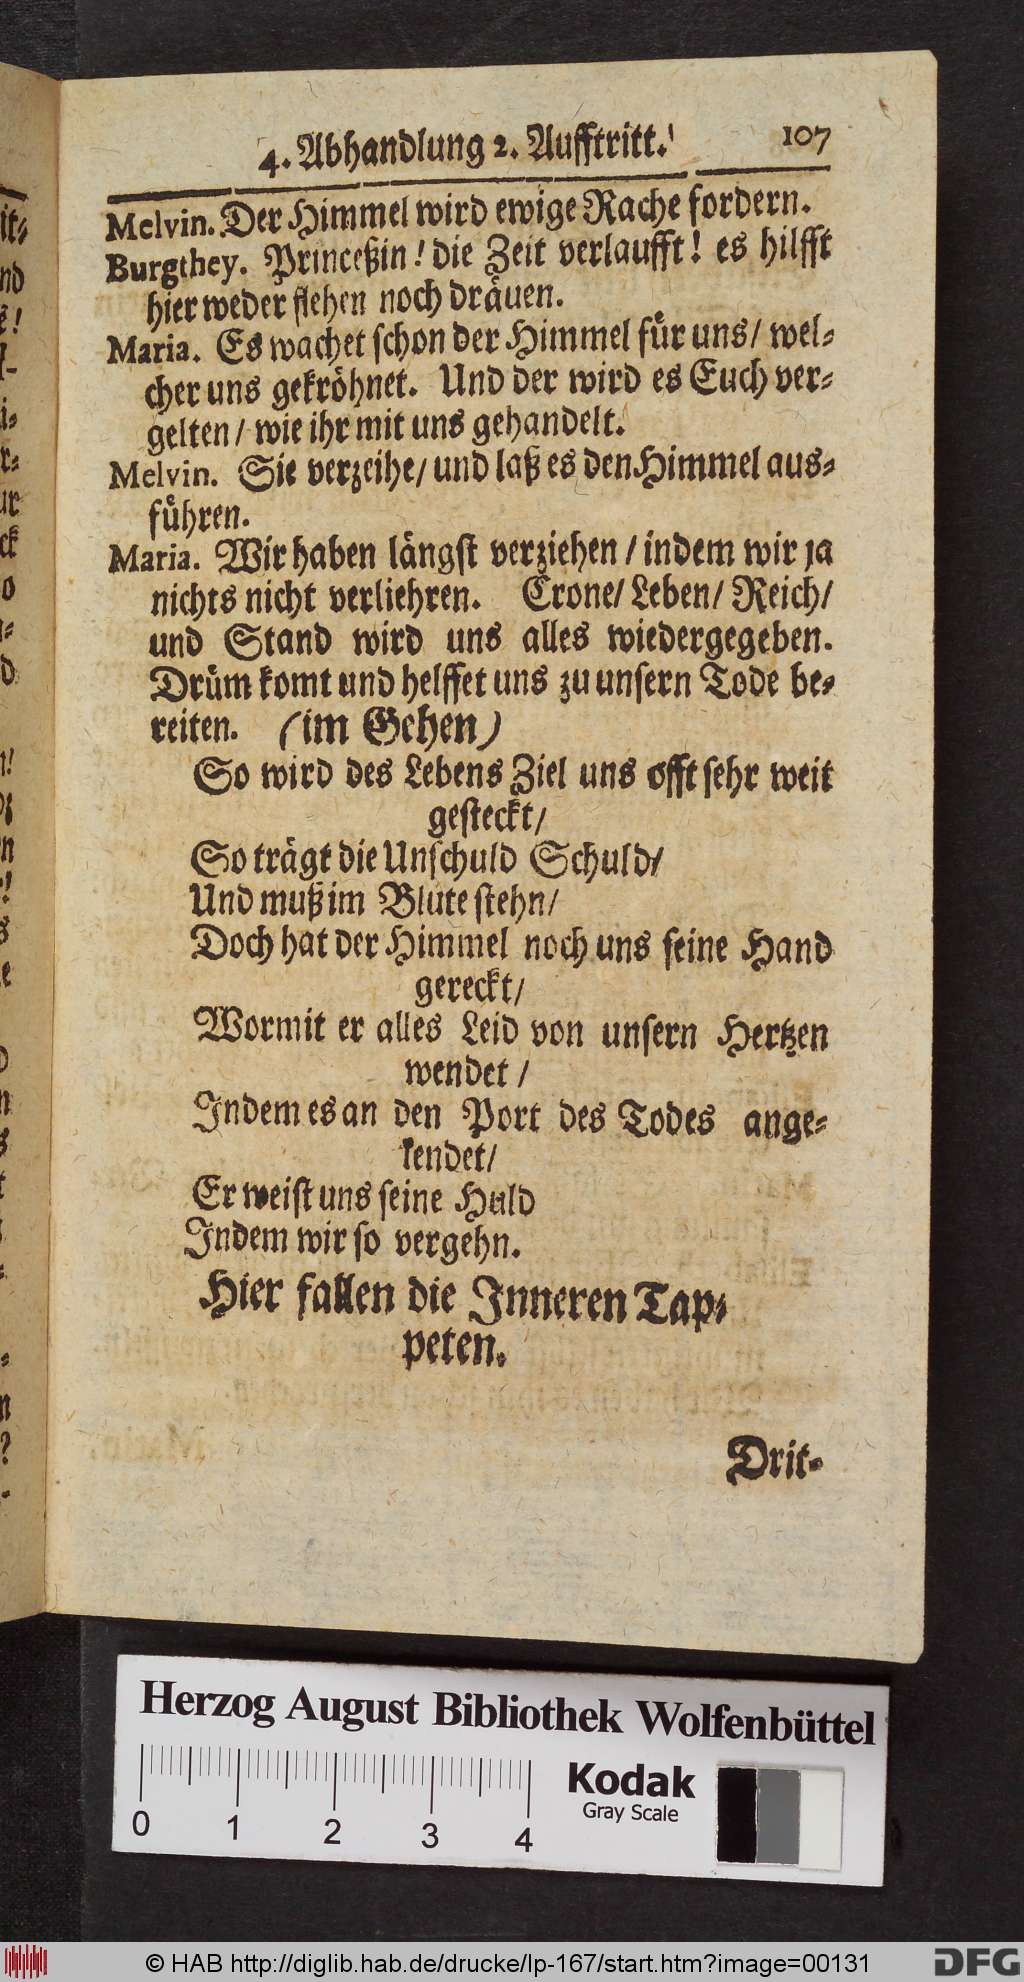 4. Abhandlung 2. Aufftritt. 107
Melvin. Der Himmel wird ewige Rache fordern.
Burgthey. Princeßin! die Zeit verlaufft! es hilfft
hier weder flehen noch dräuen.
Maria. Es wachet schon der Himmel für uns/ wel-
cher uns gekröhnet. Und der wird es Euch ver-
gelten/ wie ihr mit uns gehandelt.
Melvin. Sie verzeihe/ und laß es den Himmel aus-
führen.
Maria. Wir haben längst verziehen/ indem wir ja
nichts nicht verliehren. Crone/ Leben/ Reich/
und Stand wird uns alles wiedergegeben.
Drüm komt und helffet uns zu unsern Tode be-
reiten. (im Gehen)
So wird des Lebens Ziel uns offt sehr weit
gesteckt/
So trägt die Unschuld Schuld/
Und muß im Blute stehn/
Doch hat der Himmel noch uns seine Hand
gereckt/
Wormit er alles Leid von unsern Hertzen
wendet/
Indem es an den Port des Todes ange-
lendet/
Er weist uns seine Huld
Indem wir so vergehn.
Hier fallen die Inneren Tap-
peten.
Drit-
Herzog August Bibliothek Wolfenbüttel
Kodak
Gray Scale
0 1 2 3 4
© HAB http://diglib.hab.de/drucke/lp-167/start.htm?image=00131
DFG